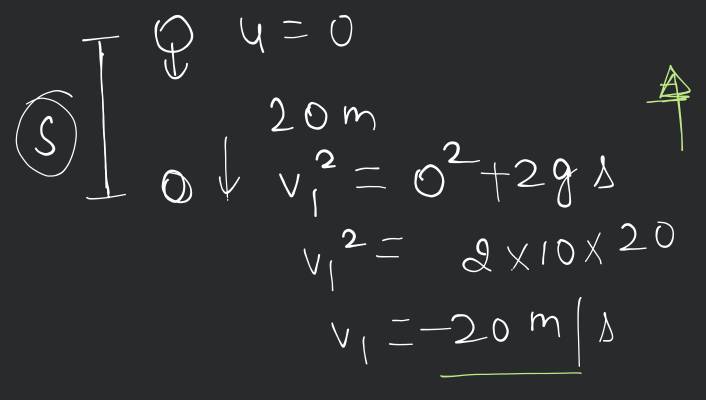 u = 0
20 m
S
v₁² = 0² + 2g s
v₁² = 2 × 10 × 20
v₁ = -20 m/s